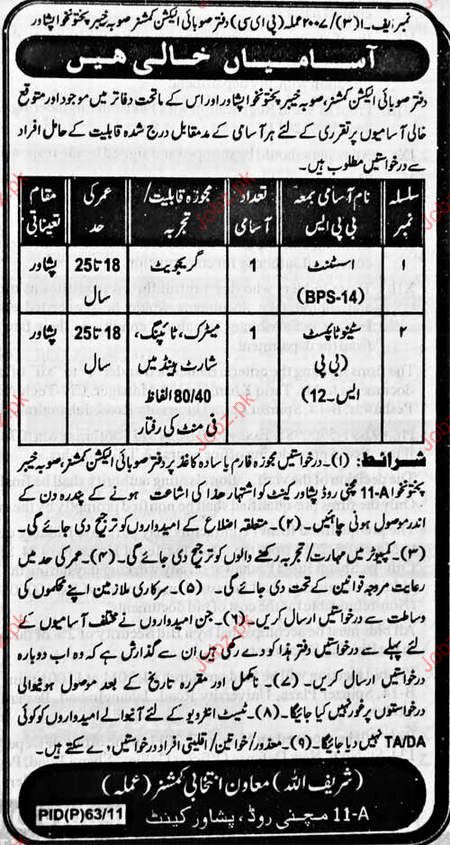 نمبر ایف۔۱(۳)/۲۰۰۷ عملہ (پی ای سی) دفتر صوبائی الیکشن کمشنر صوبہ خیبر پختونخوا پشاور
آسامیاں خالی ہیں
دفتر صوبائی الیکشن کمشنر، صوبہ خیبر پختونخوا پشاور اور اس کے ماتحت دفاتر میں موجود اور متوقع
خالی آسامیوں پر تقرری کے لئے ہر آسامی کے مدمقابل درج شدہ قابلیت کے حامل افراد
سے درخواستیں مطلوب ہیں۔
سلسلہ نمبر | نام آسامی بمعہ بی پی ایس | تعداد آسامی | مجوزہ قابلیت/تجربہ | عمر کی حد | مقام تعیناتی
۱ | اسسٹنٹ (BPS-14) | 1 | گریجویٹ | 18 تا 25 سال | پشاور
۲ | سٹینو ٹائپسٹ (بی پی ایس۔12) | 1 | میٹرک، ٹائپنگ، شارٹ ہینڈ میں 80/40 الفاظ فی منٹ کی رفتار | 18 تا 25 سال | پشاور
شرائط: (۱)۔ درخواستیں مجوزہ فارم یا سادہ کاغذ پر دفتر صوبائی الیکشن کمشنر، صوبہ خیبر
پختونخوا 11-A مچنی روڈ پشاور کینٹ کو اشتہار ھذا کی اشاعت ہونے کے پندرہ دن کے
اندر موصول ہونی چاہئیں۔ (۲)۔ متعلقہ اضلاع کے امیدواروں کو ترجیح دی جائے گی۔
(۳)۔ کمپیوٹر میں مہارت/تجربہ رکھنے والوں کو ترجیح دی جائے گی۔ (۴)۔ عمر کی حد میں
رعایت مروجہ قوانین کے تحت دی جائے گی۔ (۵)۔ سرکاری ملازمین اپنے محکموں کی
وساطت سے درخواستیں ارسال کریں۔ (۶)۔ جن امیدواروں نے مختلف آسامیوں کے
لئے پہلے سے درخواستیں دفتر ہذا کو دے رکھی ہیں ان سے گذارش ہے کہ وہ اب دوبارہ
درخواستیں ارسال کریں۔ (۷)۔ نامکمل اور مقررہ تاریخ کے بعد موصول ہونیوالی
درخواستوں پر غور نہیں کیا جائیگا۔ (۸)۔ ٹیسٹ انٹرویو کے لئے آنیوالے امیدواروں کو کوئی
TA/DA نہیں دیا جائیگا۔ (۹)۔ معذور/خواتین/اقلیتی افراد درخواستیں دے سکتے ہیں۔
(شریف اللہ) معاون انتخابی کمشنر (عملہ)
11-A مچنی روڈ، پشاور کینٹ
PID(P)63/11
Jobz.pk